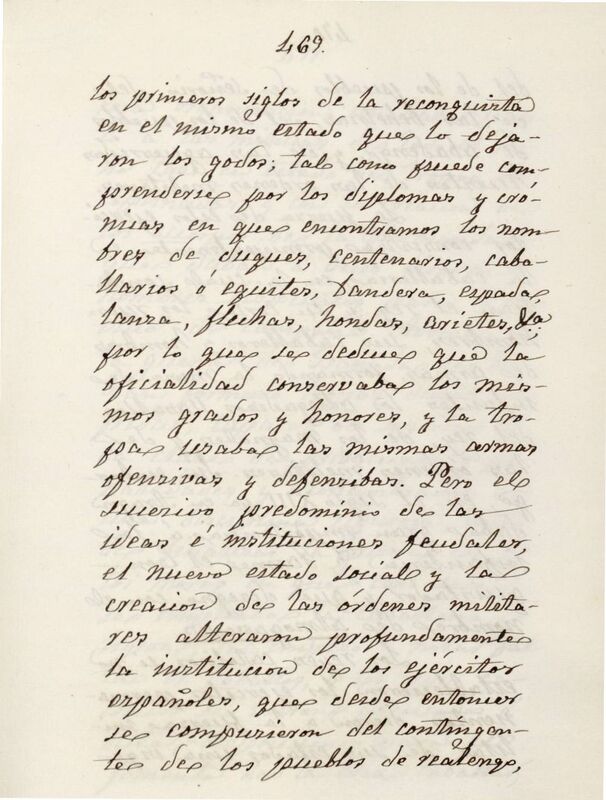 469.
los primeros siglos de la reconquista
en el mismo estado que lo deja-
ron los godos; tal como puede com-
prenderse por los diplomas y cró-
nicas en que encontramos los nom
bres de duques, centenarios, caba-
llarios ó equites, bandera, espada,
lanza, flechas, hondas, arietes, &a;
por lo que se deduce que la
oficialidad conservaba los mis-
mos grados y honores, y la tro-
pa usaba las mismas armas
ofensivas y defensibas. Pero el
sucesivo predominio de las
ideas é instituciones feudales,
el nuevo estado social y la
creacion de las órdenes milita-
res alteraron profundamente
la institucion de los ejércitos
españoles, que desde entonces
se compusieron del contingen-
te de los pueblos de realengo,